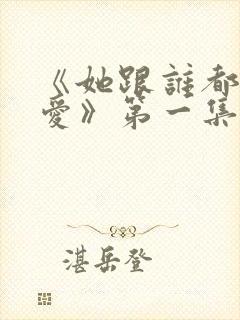 《她跟誰都
愛》第一集
湛岳登